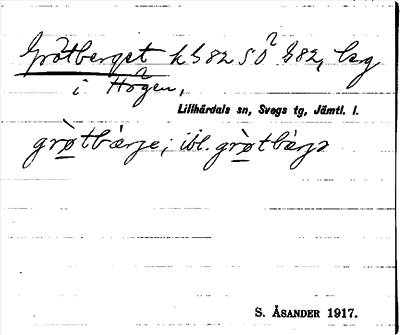 Grötberget k S 82 S O² S 82, berg
i Högen,
Lillhärdals sn, Svegs tg, Jämtl. l.
grø̀tbærje; ibl. grø̀tbærjɔ
S. ÅSANDER 1917.